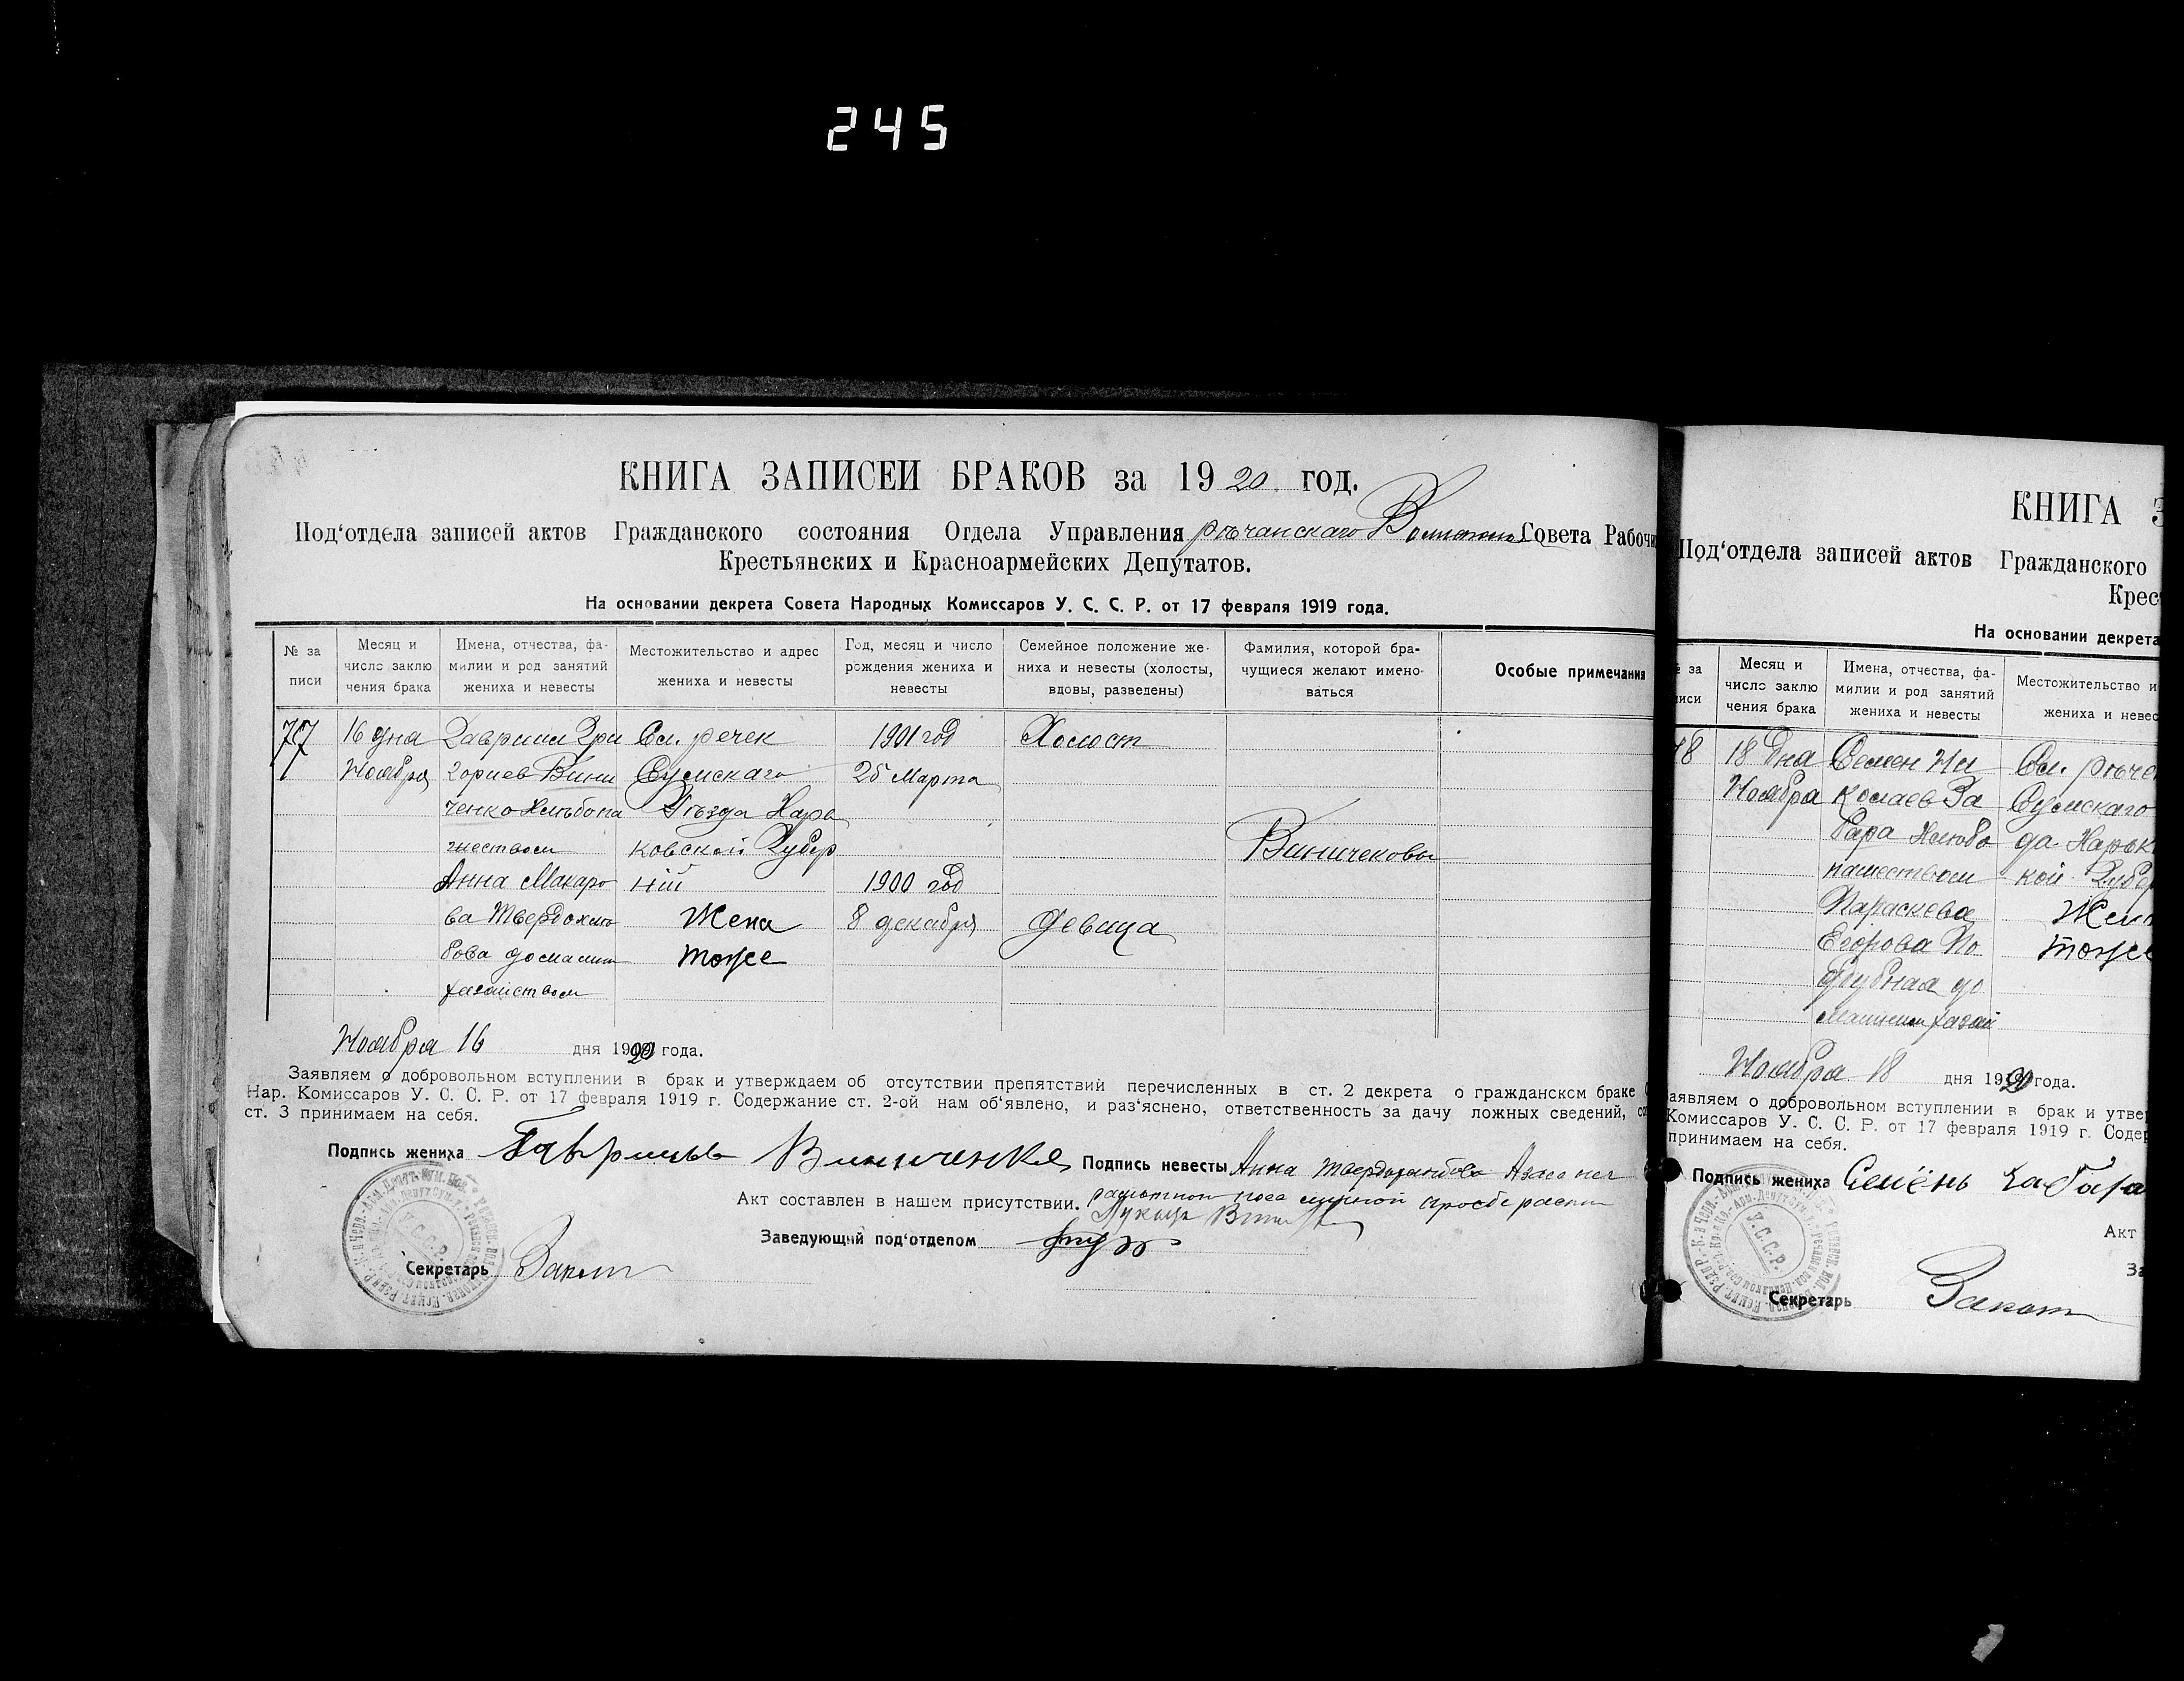 245
КНИГА ЗАПИСЕЙ БРАКОВ за 1920 год.
Под‘отдела записей актов Гражданского состояния Отдела Управления рѣчанскаго Совета Рабочи
Крестьянских и Красноармейских Депутатов.
На основании декрета Совета Народных Комиссаров У. С. С. Р. от 17 февраля 1919 года.
№ за писи
Месяц и число заклю чения брака
Имена, отчества, фа- милии и род занятий жениха и невесты
Местожительство и адрес жениха и невесты
Год, месяц и число рождения жениха и невесты
Семейное положение же- ниха и невесты (холосты, вдовы, разведены)
Фамилия, которой бра- чущиеся желают имено- ваться
Особые примечания
77 16 дня Гавриил Гри Сл. речек 1901 год Холост
Ноября гориев Вини Сумскаго 25 Марта
ченко Хлѣбопа Уѣзда Харь
шеством ковской Губер Виниченковы
Анна Макаро ній 1900 год
ва Твердохлѣ Жена 8 декабря девица
бова домашн тоже
хазайством
Ноября 16 дня 1920 года.
Заявляем о добровольном вступлении в брак и утверждаем об отсутствии препятствий перечисленных в ст. 2 декрета о гражданском браке
Нар. Комиссаров У. С. С. Р. от 17 февраля 1919 г. Содержание ст. 2-ой нам об‘явлено, и раз‘яснено, ответственность за дачу ложных сведений,
ст. 3 принимаем на себя.
Подпись жениха Гавриилъ Виниченко Подпись невесты Анна Твердохлибова
Акт составлен в нашем присутствии. просбе
Заведующий под‘отделом
Секретарь
У.С.С.Р.
КНИГА З
Под‘отдела записей актов Гражданского
Крес
На основании декрета
№ за писи
Месяц и число заклю чения брака
Имена, отчества, фа- милии и род занятий жениха и невесты
Местожительство и жениха и невес
78 18 Дня Семен Ни Сл. рѣче
Ноября колаев За Сумскаго
бара Хлѣбо да Харьк
пашеством кой Губер
Параскева Жен
Егорова По тоже
дубная до
машним хазай
Ноября 18 дня 1920 года.
Заявляем о добровольном вступлении в брак и утве
Комиссаров У. С. С. Р. от 17 февраля 1919 г. Содер
принимаем на себя.
Подпись жениха Семёнъ Забара
Акт
За
У.С.С.Р.
Секретарь